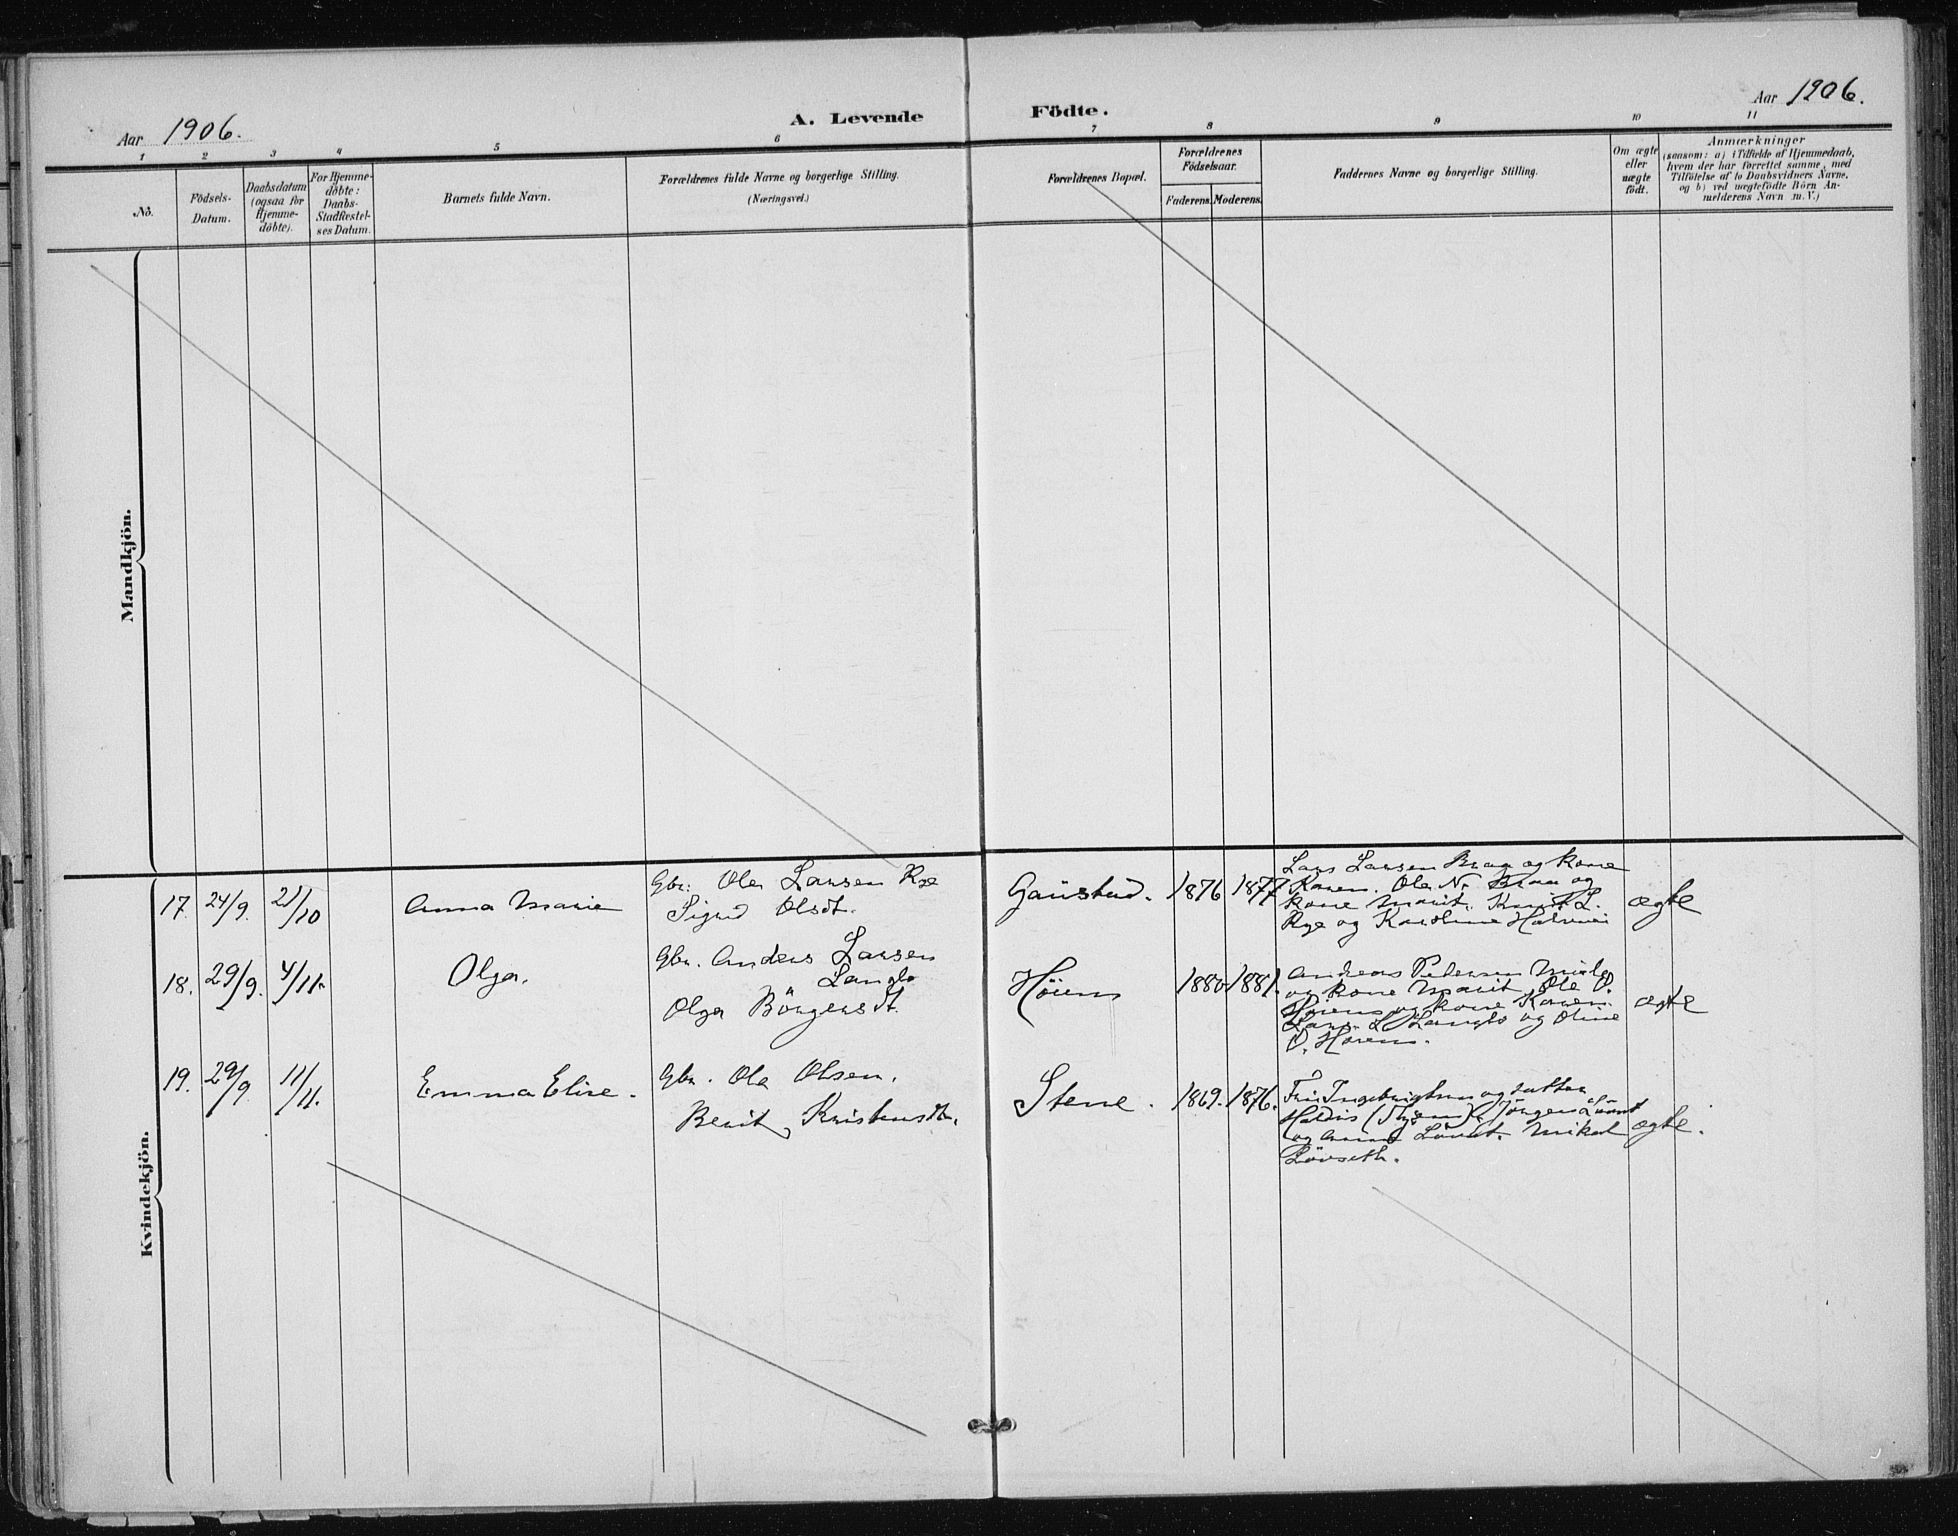 Aar 1906.
A. Levende Födte.
Aar 1906.
1 2 3 4 5 6 7 8 9 10 11
No.
Födsels-Datum.
Daabsdatum (ogsaa for Hjemme-döbte).
For Hjemme-döbte: Daabs-Stadfestel-ses Datum.
Barnets fulde Navn.
Forældrenes fulde Navne og borgerlige Stilling. (Næringsvei.)
Forældrenes Bopæl.
Forældrenes Födselsaar.
Faderens. Moderens.
Faddernes Navne og borgerlige Stilling.
Om ægte eller uægte födt.
Anmærkninger
(saasom: a) i Tilfælde af Hjemmedaab,
hvem der har forrettet samme, med
Tilföielse af to Daabsvidners Navne,
og b) ved uægtefödte Börn An-
melderens Navn m.V.)
Mandkjön.
Kvindekjön.
17. 24/9. 21/10 Anna Marie
Gbr. Ole Larsen Rye
Sigrid Olsdt.
Gaustad. 1876 1877
Lars Larsen Braa og kone
Karen. Ole N. Braa og
kone Marit. Knut L.
Rye og Karoline
ægte
18. 29/9. 4/11. Olga.
Gbr. Anders Larsen
Langlo
Olga Börgensdt.
Höiem 1880 1881.
Andreas Petersen
og kone Marit, Ole O.
Höiem og kone Karen.
Lars L. Langlo og Oline
O. Höiem.
ægte
19. 29/9. 11/11. Emma Elise.
Gbr. Ole Olsen.
Berit Kristensdt.
Stene. 1869. 1876.
Fru Ingebrigtsen og datter
Haldis Jörgen
og Anna Mikal
Lövseth.
ægte.